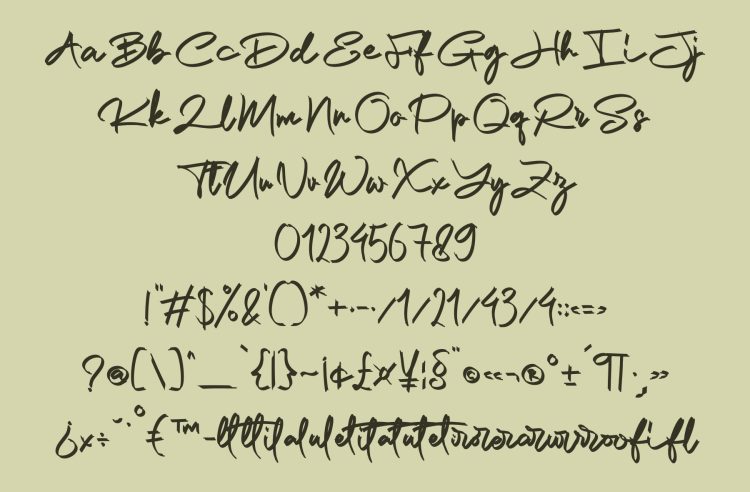 Aa Bb Cc Dd Ee Ff Gg Hh Ii Jj
Kk Ll Mm Nn Oo Pp Qq Rr Ss
Tt Uu Vv Ww Xx Yy Zz
0123456789
!"#$%&'()*+,-./1/21/43/4:;<=>
?@[\]^_`{|}~¡¢£¤¥¦§¨©«¬®°±´¶·¸»
¿×÷˘˙˚€™−